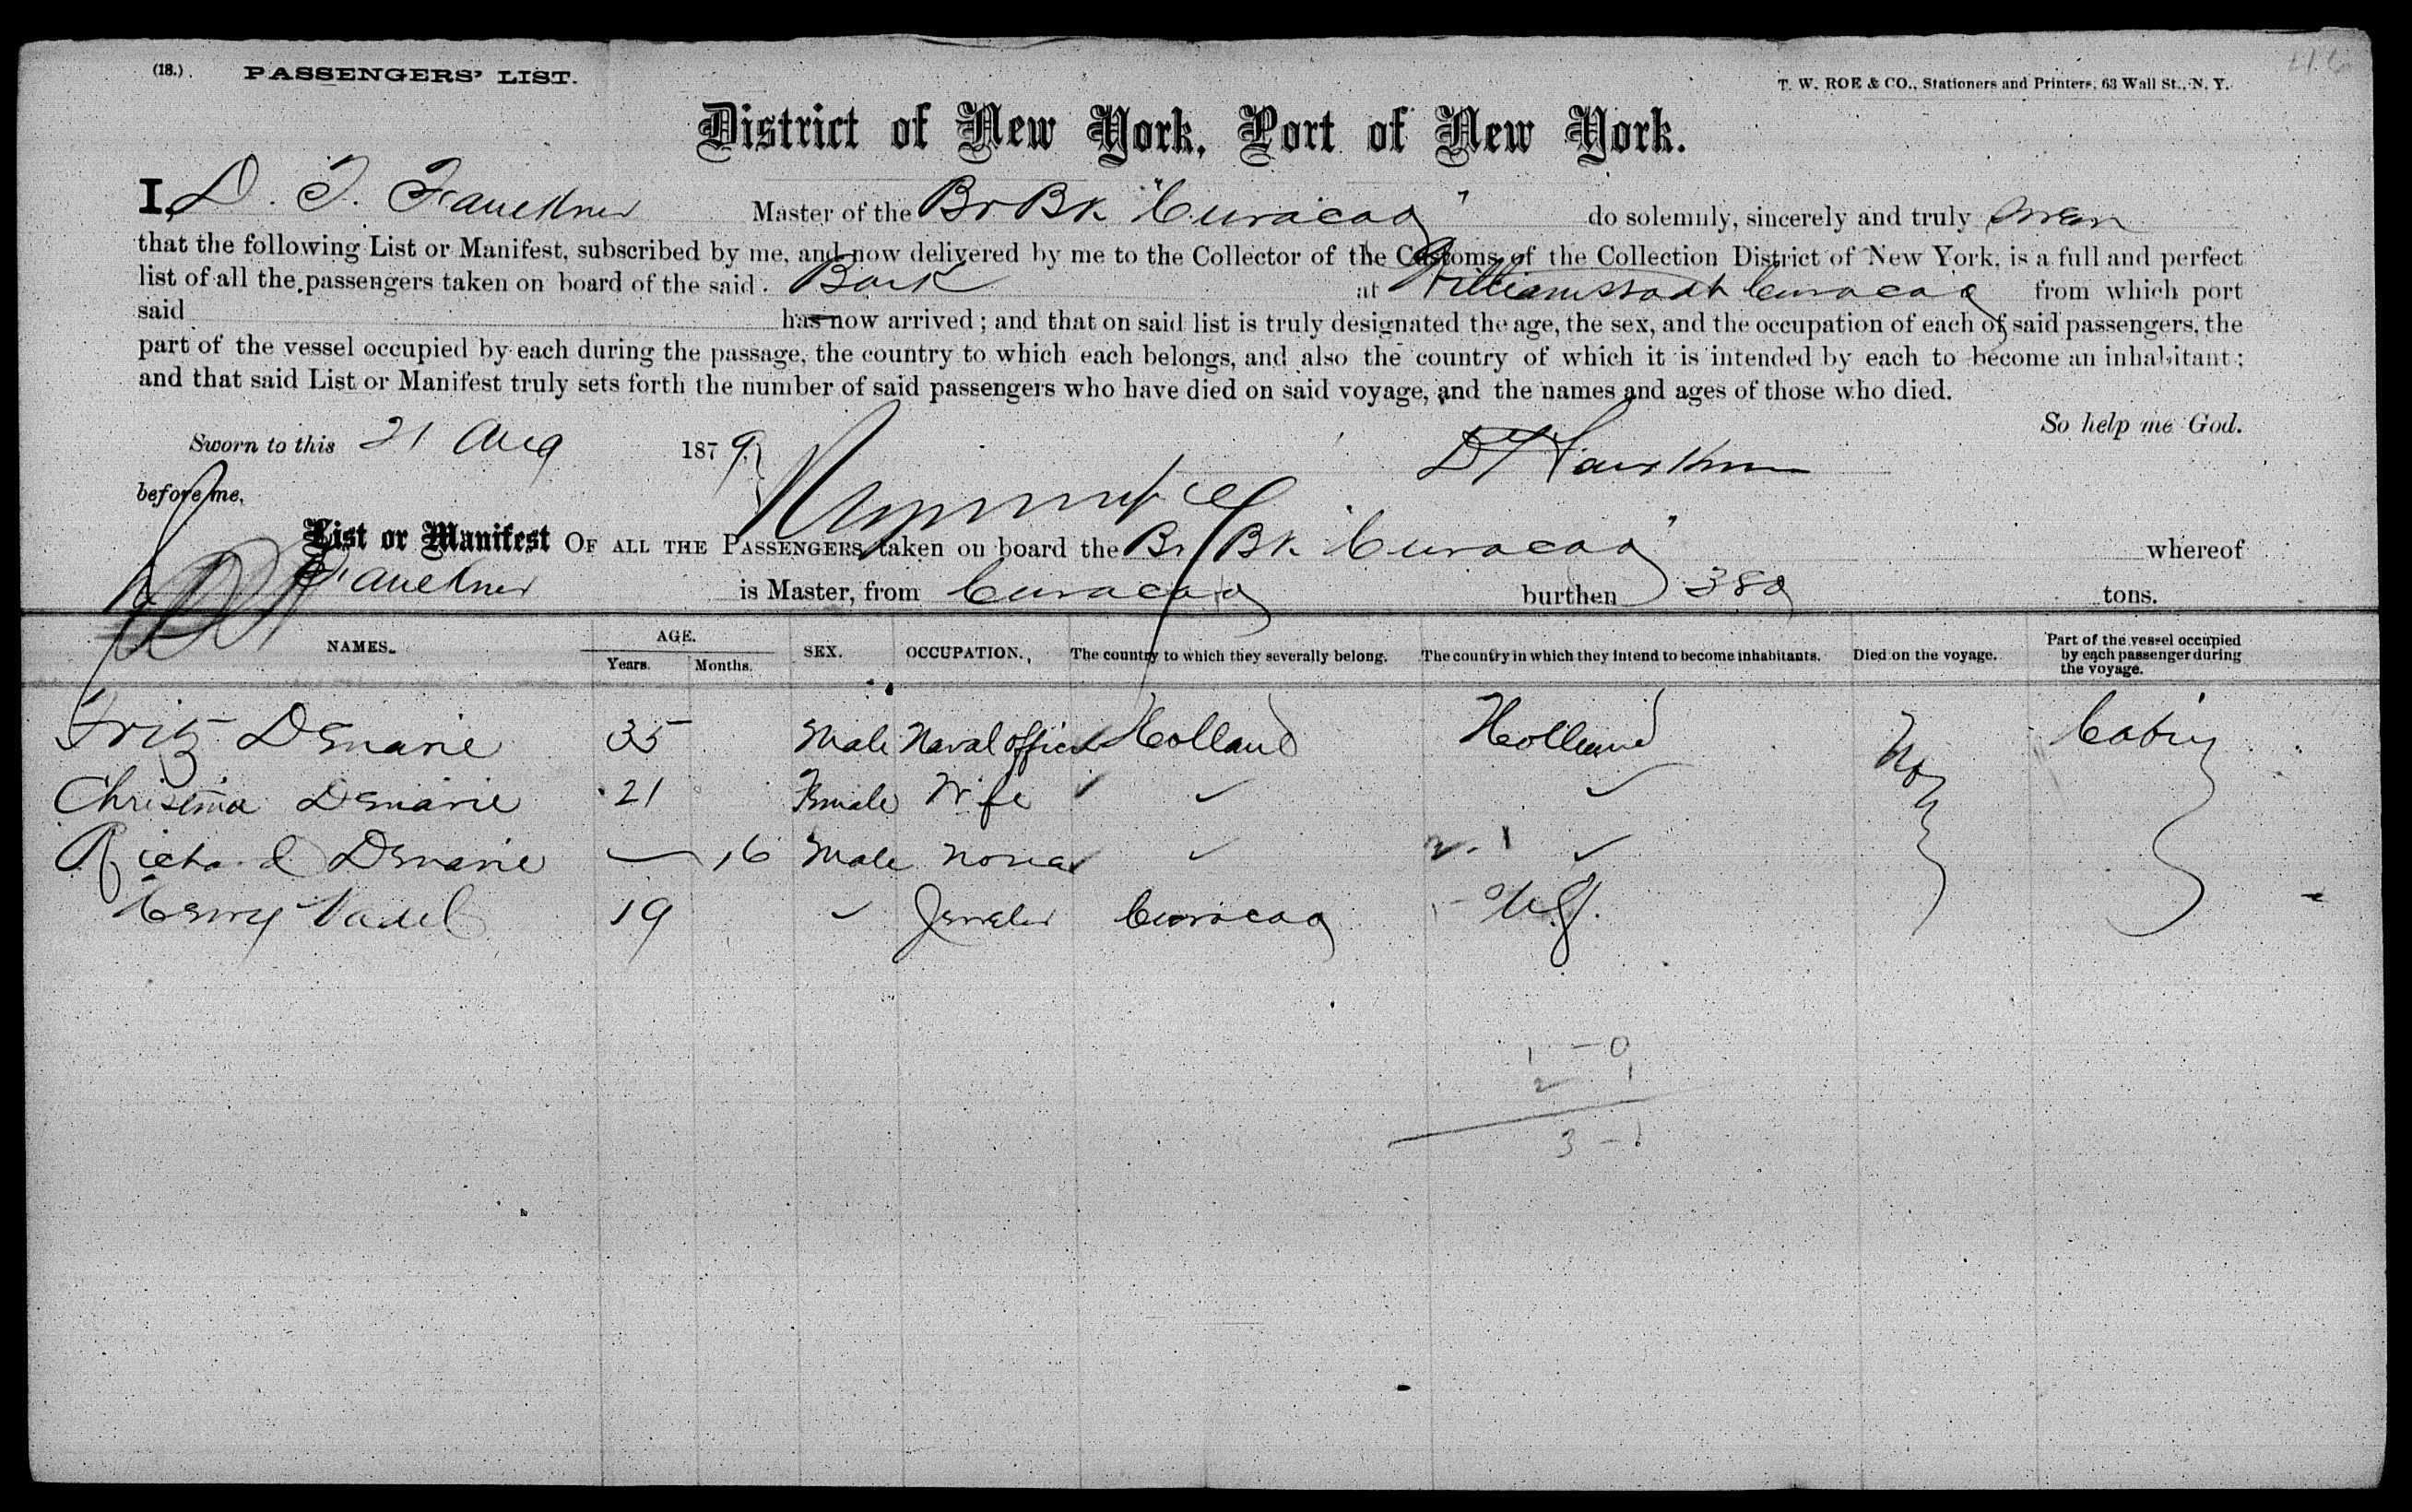 (18.) PASSENGERS' LIST. T. W. ROE & CO., Stationers and Printers, 63 Wall St., N. Y.
District of New York, Port of New York.
I, D. T. Faulkner Master of the Br Bk "Curacao" do solemnly, sincerely and truly swear
that the following List or Manifest, subscribed by me, and now delivered by me to the Collector of the Customs of the Collection District of New York, is a full and perfect
list of all the passengers taken on board of the said Bark at Williamstadt Curacao from which port
said has now arrived; and that on said list is truly designated the age, the sex, and the occupation of each of said passengers, the
part of the vessel occupied by each during the passage, the country to which each belongs, and also the country of which it is intended by each to become an inhabitant;
and that said List or Manifest truly sets forth the number of said passengers who have died on said voyage, and the names and ages of those who died.
So help me God.
Sworn to this 21 Aug 1879 D T Faulkner
before me,
List or Manifest OF ALL THE PASSENGERS taken on board the Br Bk "Curacao" whereof
Faulkner is Master, from Curacao burthen 380 tons.
NAMES. AGE. Years. Months. SEX. OCCUPATION. The country to which they severally belong. The country in which they intend to become inhabitants. Died on the voyage. Part of the vessel occupied by each passenger during the voyage.
Fritz Demarie 35 Male Naval officer Holland Holland No Cabin
Christina Demarie 21 Female Wife ✓ ✓
Richard Demarie — 16 Male None ✓ 2-1 ✓
Henry 19 ✓ Jeweler Curacao
1 - 0
2 1
3 - 1